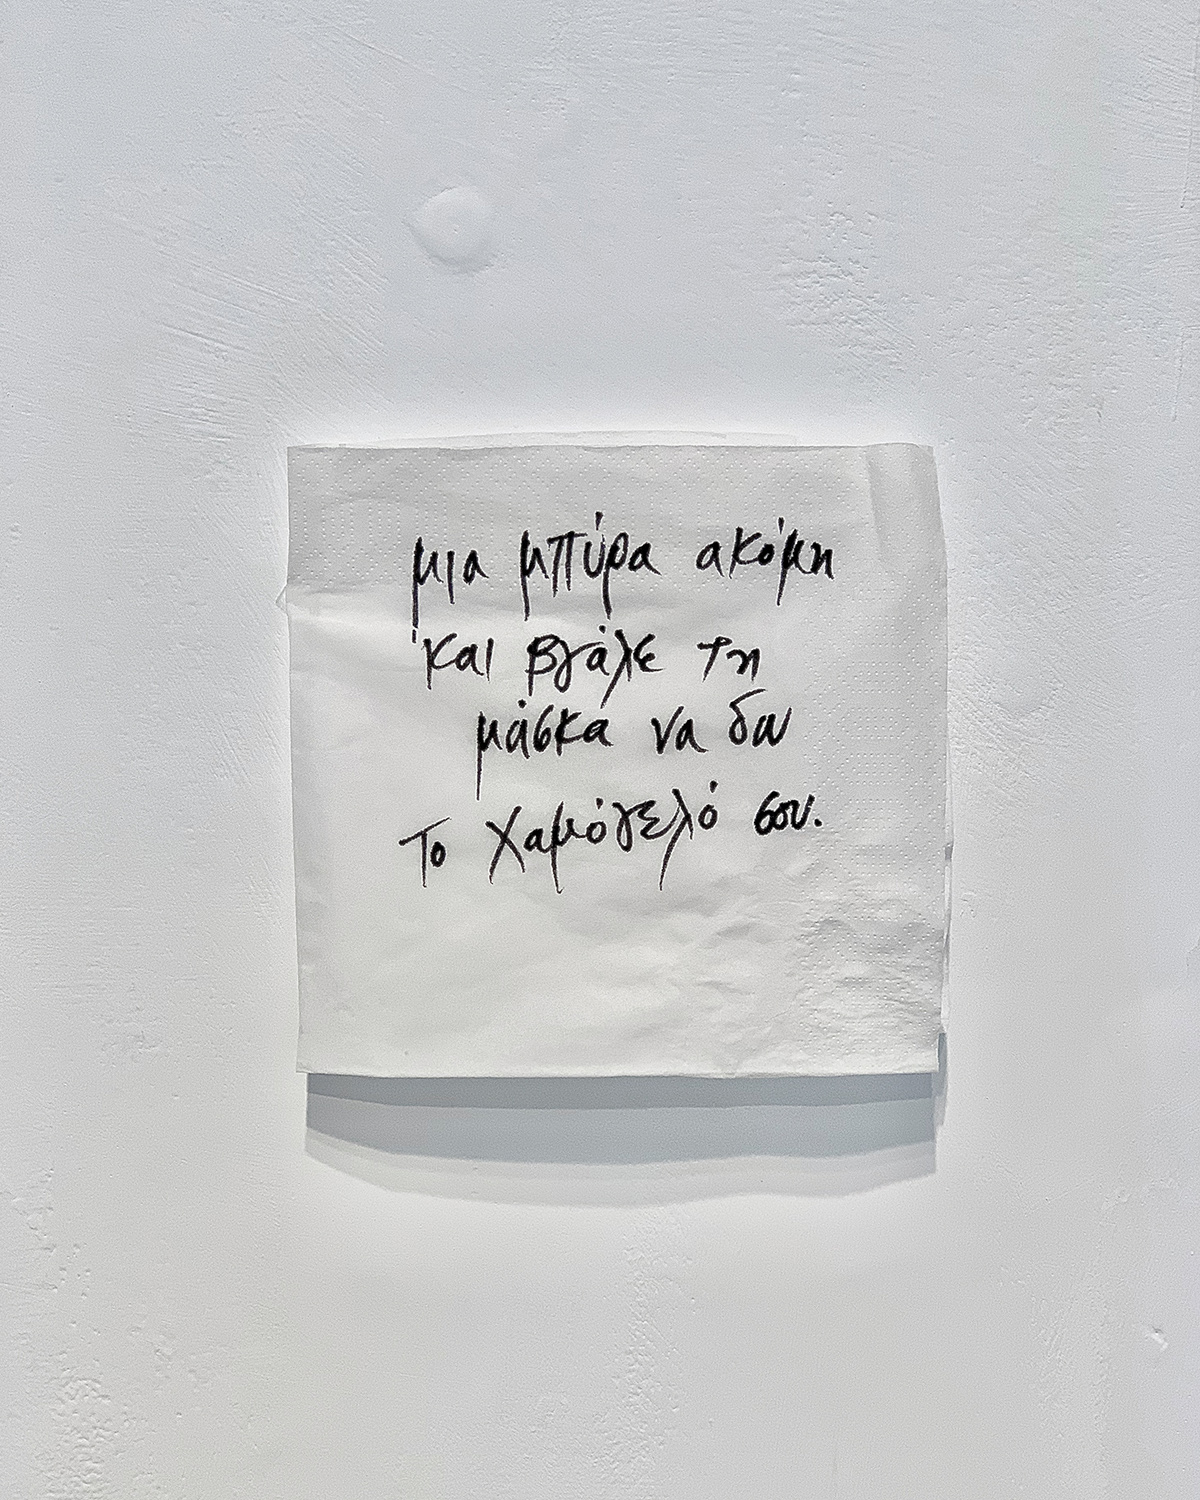 μια μπύρα ακόμη
και βγάλε τη
μάσκα να δω
το χαμόγελό σου.